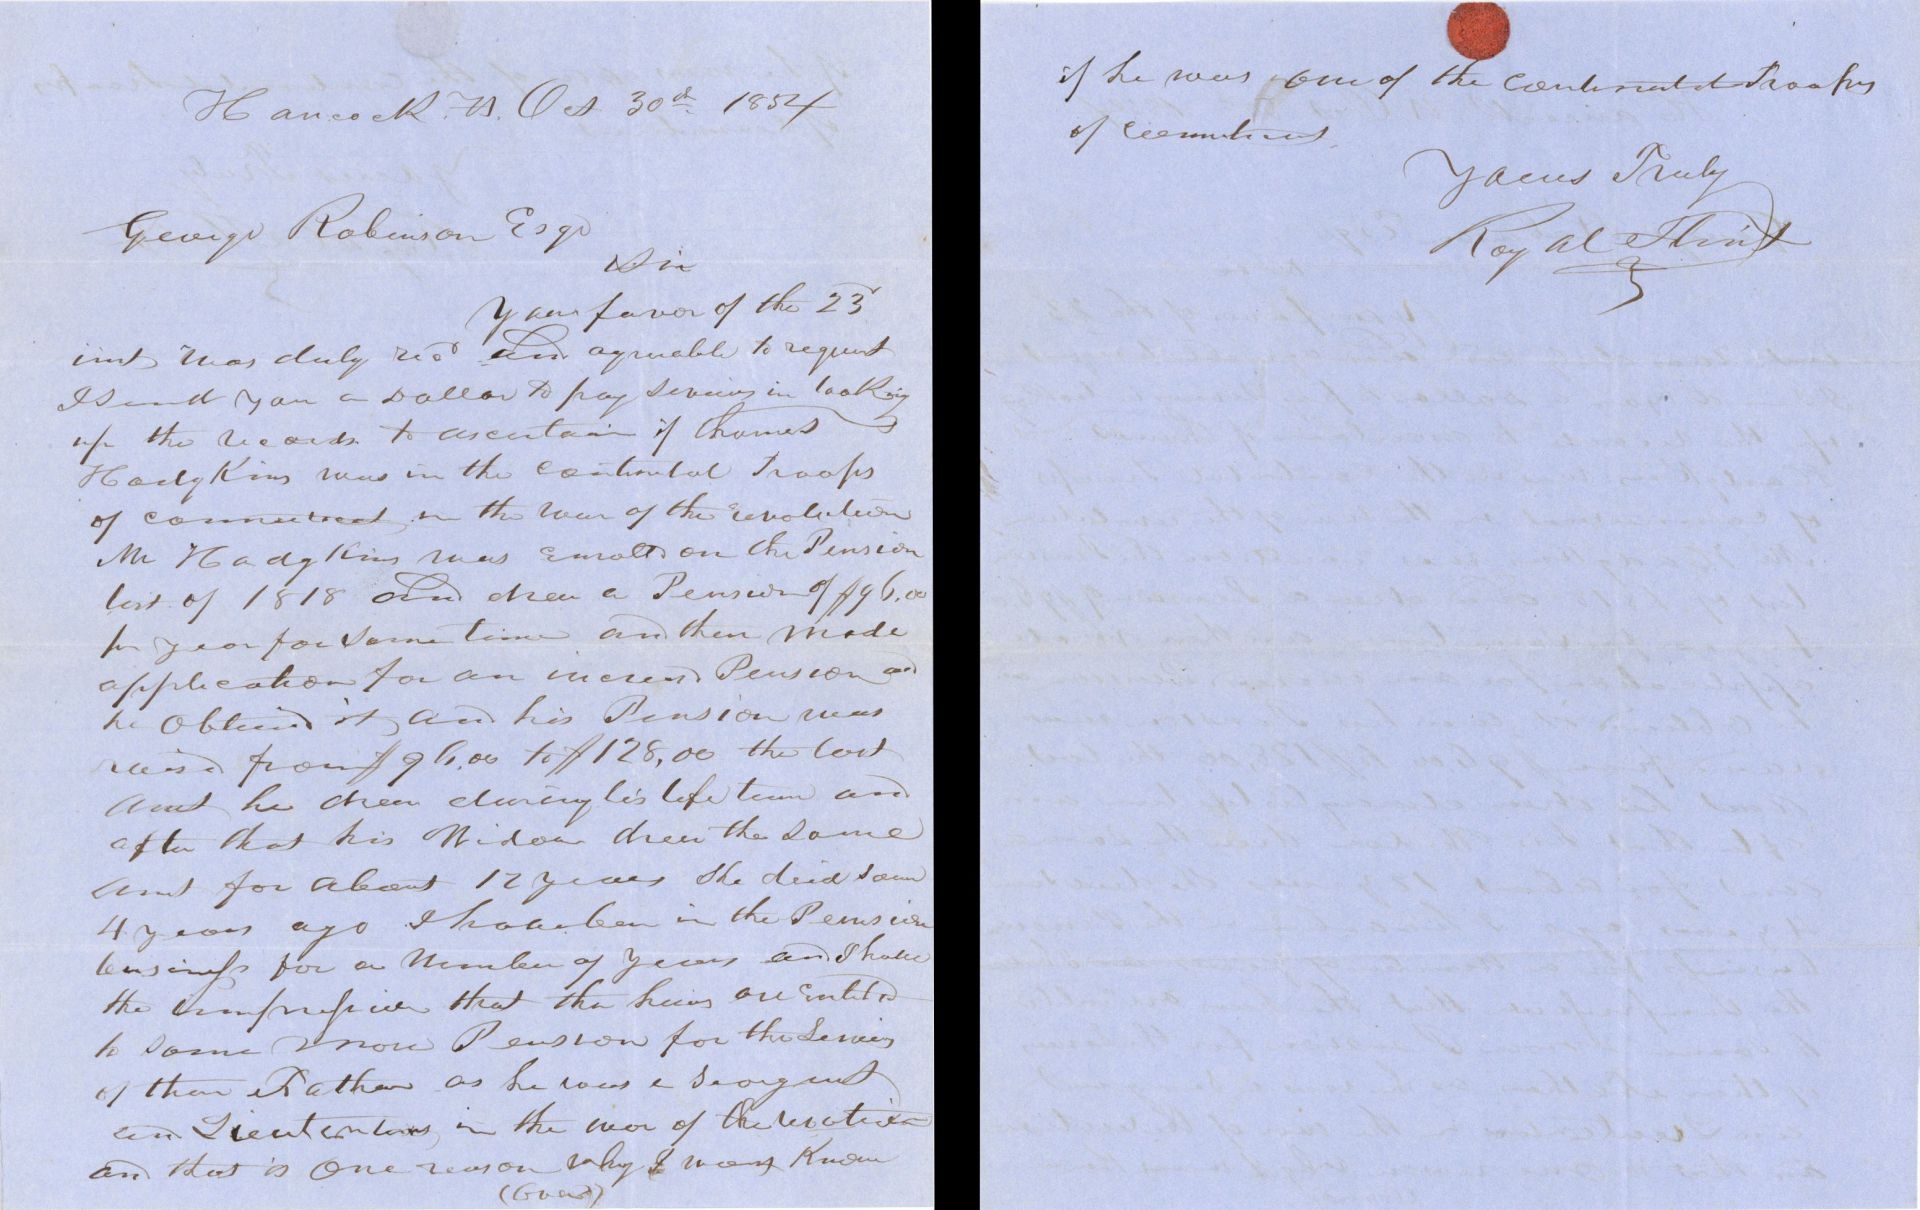 Hancock Vt. Oct 30th 1854
George Robinson Esqr
Sir
Your favor of the 23
inst was duly recd and agreable to request
I send you a Dollar to pay services in looking
up the records to ascertain if Thomas
Hodgkins was in the continental Troops
of connecticut in the war of the revolution
Mr Hodgkins was enrolld on the Pension
list of 1818 and drew a Pension of $96.00
pr year for some time and then made
application for an increas Pension and
he obtaind it and his Pension was
raisd from $96.00 to $128,00 the last
amt he drew during his life time and
after that his Widow drew the same
amt for about 12 years She died some
4 years ago I have been in the Pension
business for a Number of years and I have
the impression that the heirs are Entitled
to some more Pension for the Services
of their Father as he was a Seargent
and in the war of the revolution
and that is one reason why I want Know
(Over)
if he was one of the continental Troops
of connecticut
Yours Truly
Royal Flint